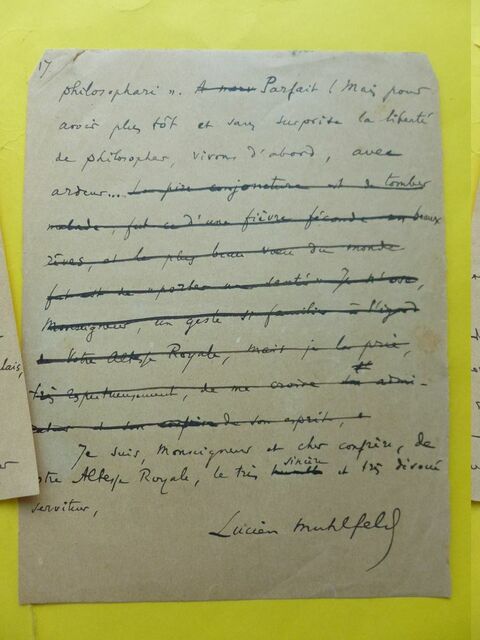 17
philosophari ». A nous Parfait ! Mais pour
avoir plus tôt et sans surprise la liberté
de philosopher, vivons d'abord, avec
ardeur... La pire conjoncture est de tomber
malade, fut ce d'une fièvre féconde en beaux
rêves, et le plus beau vœu du monde
fut est de « porter une santé » Je n'ose,
Monseigneur, un geste si familier à l'égard
Votre Altesse Royale, mais je la prie,
très respectueusement, de me croire admi-
de son esprit,
Je suis, Monseigneur et cher confrère, de
otre Altesse Royale, le très humble sincère et très dévoué
serviteur,
Lucien Muhlfeld
lais,